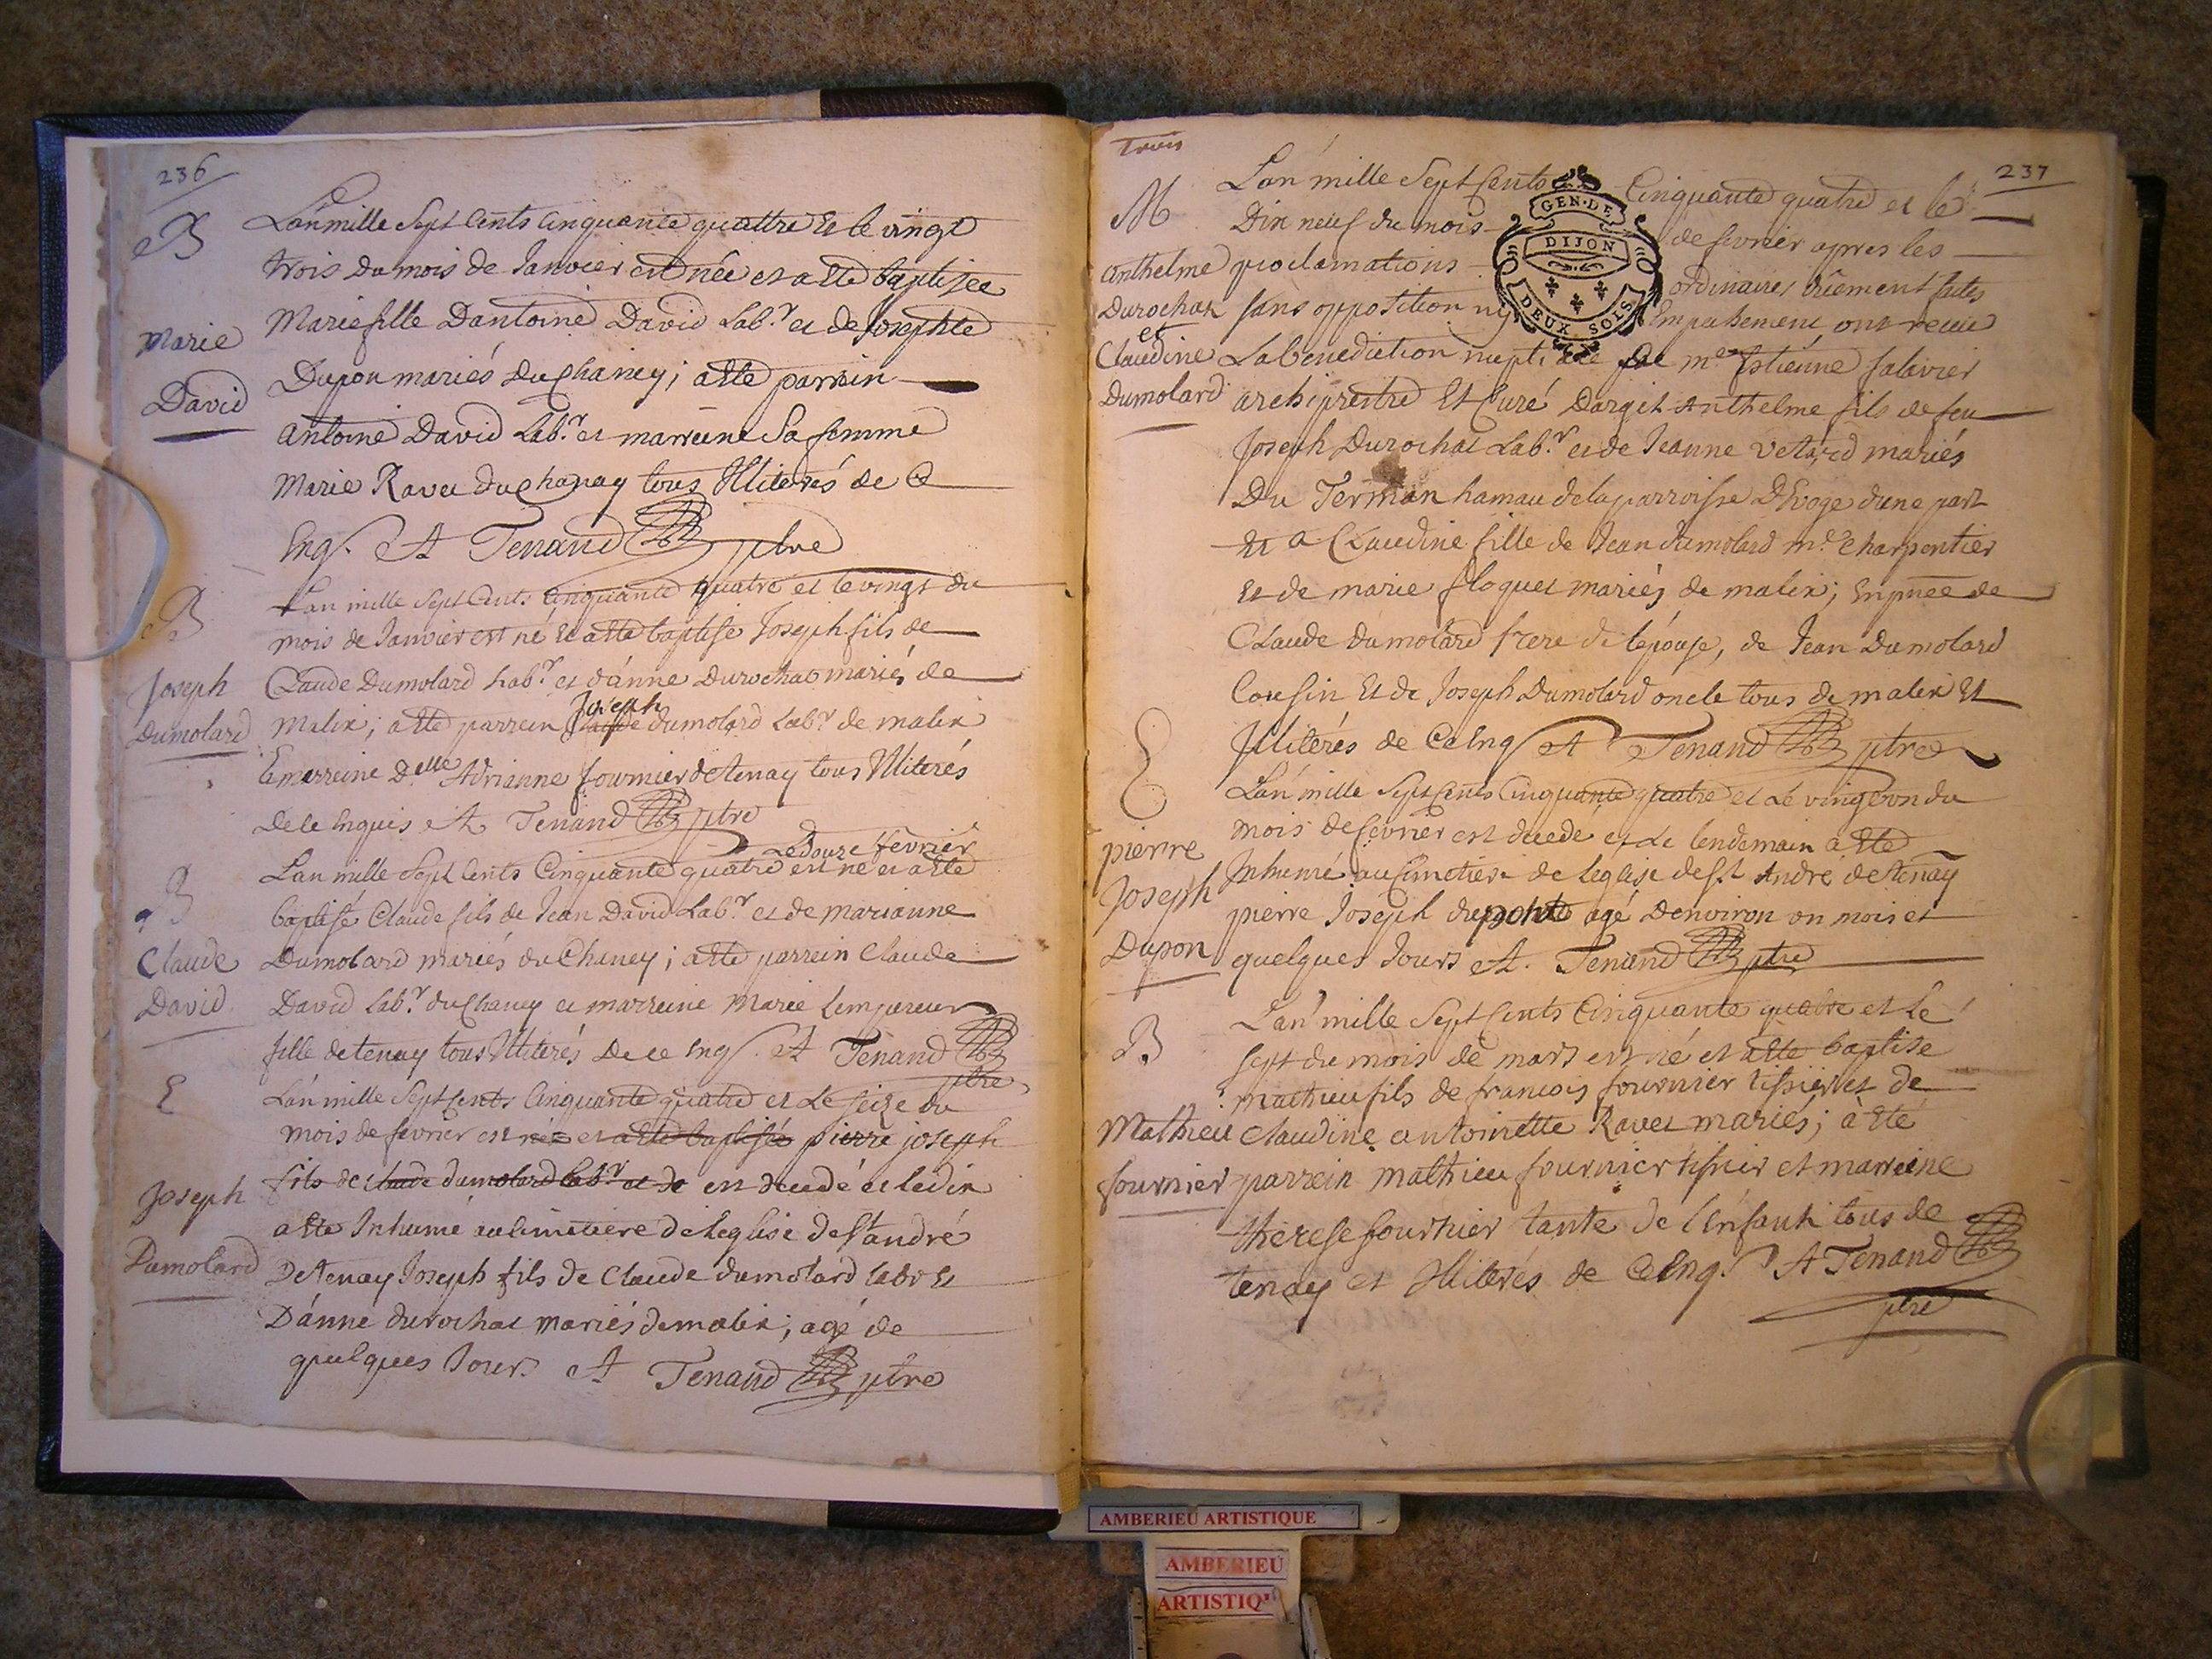 236
B
L'an mille Sept Cents Cinquante quattre Et le vingt
trois du mois de Janvier est née et a Eté baptisée
Marie fille Dantoine David Lab.r et de Josephte
Marie
David
Dupon mariés du Chaney; a Eté parrain
antoine David Lab.r et marreine Sa femme
Marie Ravet du Chanay tous Illiterés de Ce
Enq. A Tenand ptre
B
L'an mille Sept Cents Cinquante quatre et le vingt du
mois de Janvier est né Et a Eté baptisé Joseph fils de
Joseph
Dumolard
Claude Dumolard Lab.r et d'anne Durochat mariés de
Joseph
Malix; a Eté parrein Claude dumolard Lab.r de malix
Et marreine Delle Adrianne fournier de tenay tous Illiterés
De ce Enquis A Tenand ptre
Le douze fevrier
B
L'an mille Sept Cents Cinquante quatre est né et a Eté
baptisé Claude fils de Jean David Lab.r et de marianne
Claude
David
Dumolard mariés du Chaney; a Eté parrein Claude
David Lab.r du Chaney et marreine Marie Lempereur
fille de tenay tous Illiterés De ce Enq. A Tenand
ptre
E
L'an mille Sept Cents Cinquante quatre et Le seize du
mois de fevrier est née et a Eté baptisée pierre joseph
Joseph
Dumolard
fils de claude dumolard lab.r et de est decedé et le dix
a Eté Inhumé au Cimetiere de Leglise de St andré
De tenay Joseph fils de Claude dumolard labr Et
D'anne durochat mariés de malix; agé de
quelques Jours A Tenand ptre
Trois
237
M
L'an mille Sept Cents Cinquante quatre et le
Dix neuf du mois de fevrier apres les
GEN. DE
DIJON
DEUX SOLS
anthelme
Durochat
et
Claudine
Dumolard
proclamations ordinaires
sans opposition ny Empechement ont recue
La benediction nuptiale par me Estienne Salavier
archiprestre Et Curé Dargit Anthelme fils de feu
Joseph Durochat Lab.r et de Jeanne Vetard mariés
Du Terman hamau de la parroisse D'Evoge dune part
Et a Claudine fille de Jean dumolard m.e Charpentier
Et de marie floquet mariés de malix; En pnée de
Claude dumolard frere de l'epouse, de Jean Dumolard
Cousin Et de Joseph Dumolard oncle tous de malix Et
Illiterés de Ce Enq A Tenand ptre
E
pierre
Joseph
Dupon
L'an mille Sept Cents Cinquante quatre et Le vingt un du
mois de fevrier est decedé et Le lendemain a Eté
Inhumé au Cimetiere de Leglise de St André de tenay
pierre Joseph dupont agé denviron un mois et
quelques Jours A. Tenand ptre
B
L'an mille Sept Cents Cinquante quatre et Le
sept du mois de mars est né et a Eté baptisé
mathieu fils de francois fournier tissier et de
Mathieu
fournier
Claudine antoinette Ravet mariés; a Eté
parrein mathieu fournier tissier et marreine
therese fournier tante de l'Enfant tous de
tenay et Illiterés de Ce Enq. A Tenand
ptre
AMBERIEU ARTISTIQUE
AMBERIEU
ARTISTIQ